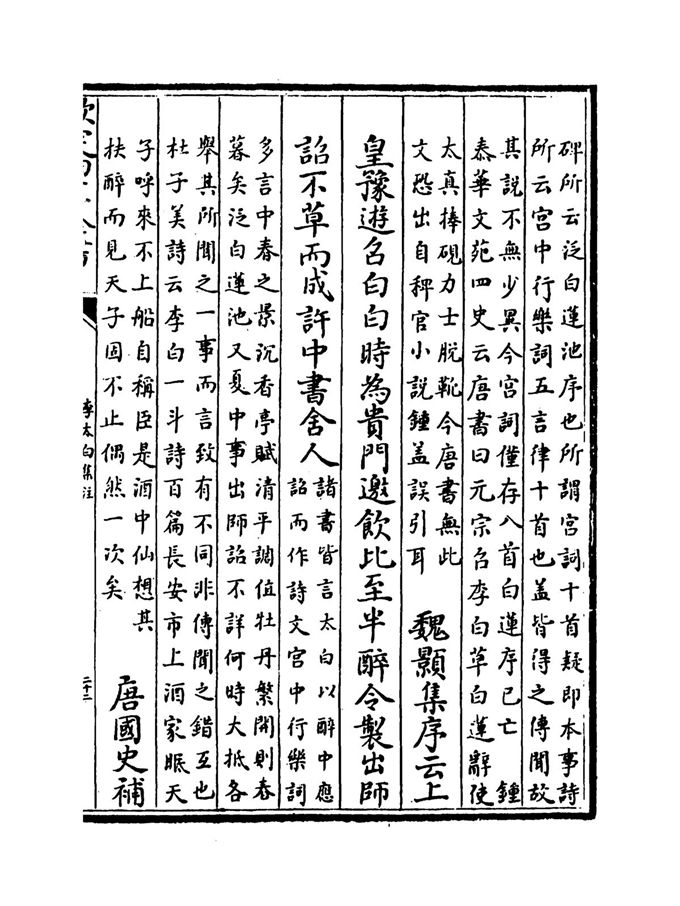 碑所云泛白蓮池序也所謂宮詞十首疑即本事詩
所云宮中行樂詞五言律十首也盖皆得之傳聞故
其說不無少異今宮詞僅存八首白蓮序已亡　鍾
泰華文苑四史云唐書曰元宗召李白草白蓮辭使
太真捧硯力士脫靴今唐書無此
文恐出自稗官小說鍾盖誤引耳　魏顥集序云上
皇豫遊召白白時為貴門邀飲比至半醉令製出師
詔不草而成許中書舍人
諸書皆言太白以醉中應
詔而作詩文宮中行樂詞
多言中春之景沉香亭賦清平調值牡丹繁開則春
暮矣泛白蓮池又夏中事出師詔不詳何時大抵各
舉其所聞之一事而言致有不同非傳聞之錯互也
杜子美詩云李白一斗詩百篇長安市上酒家眠天
子呼來不上船自稱臣是酒中仙想其
扶醉而見天子固不止偶然一次矣　唐國史補
李太白集注
二十二